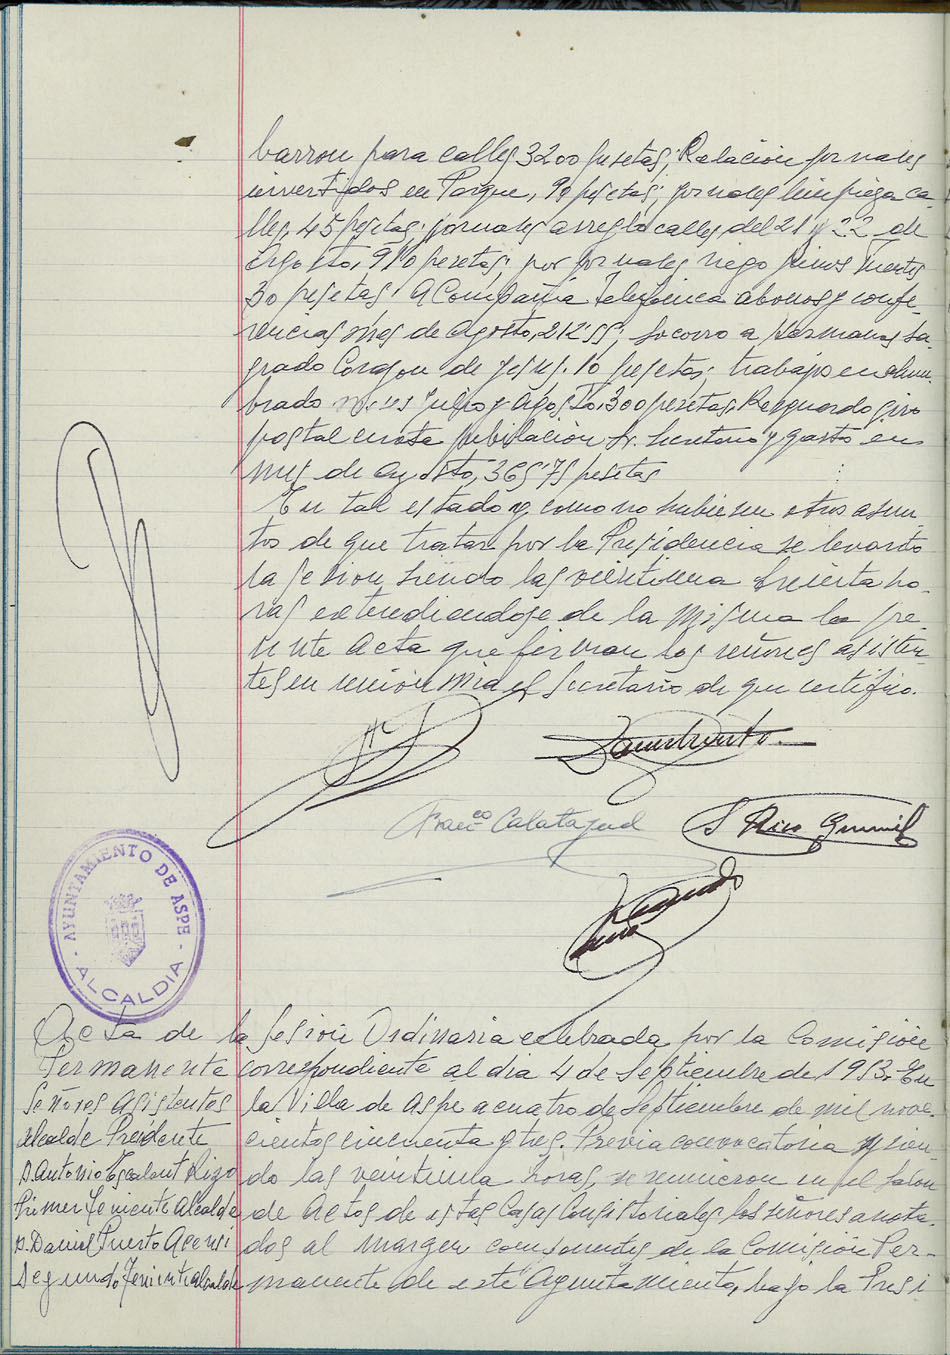 barrón para calles 3200 pesetas; Relación jornales
invertidos en Parque, 90 pesetas; jornales limpieza ca-
lles, 45 pesetas; jornales arreglo calles del 21 y 22 de
Agosto, 910 pesetas; por jornales riego pinos
30 pesetas; A Compañía Telefónica abonos y confe-
rencias mes de Agosto, 212'55; Socorro a Hermanas Sa-
grado Corazon de Jesus. 10 pesetas; trabajos en alum-
brado meses Julio y Agosto, 300 pesetas. Resguardo giro
postal cuota jubilación Sr. Secretario y gasto en
mes de agosto, 365'75 pesetas
En tal estado y como no hubiesen otros asun-
tos de que tratar por la Presidencia se levantó
la sesion siendo las veintiuna treinta ho-
ras extendiendose de la misma la pre-
sente Acta que firman los señores asisten-
tes en union mia el Secretario de que certifico.
Franco Calatayud
S Rico
AYUNTAMIENTO DE ASPE
- ALCALDIA -
Acta de la Sesión Ordinaria celebrada por la Comisión
Permanente correspondiente al dia 4 de Septiembre de 1953. En
Señores Asistentes
la Villa de Aspe a cuatro de Septiembre de mil nove-
Alcalde Presidente
cientos cincuenta y tres. Previa convocatoria y sien-
D. Antonio Escalant Rizo
do las veintiuna horas, se reunieron en el Salon
Primer Teniente Alcalde
de Actos de estas Casas Consistoriales los señores anota-
D. Daniel Puerto Asensi
dos al margen componentes de la Comisión Per-
Segundo Teniente Alcalde
manente de este Ayuntamiento, bajo la Presi